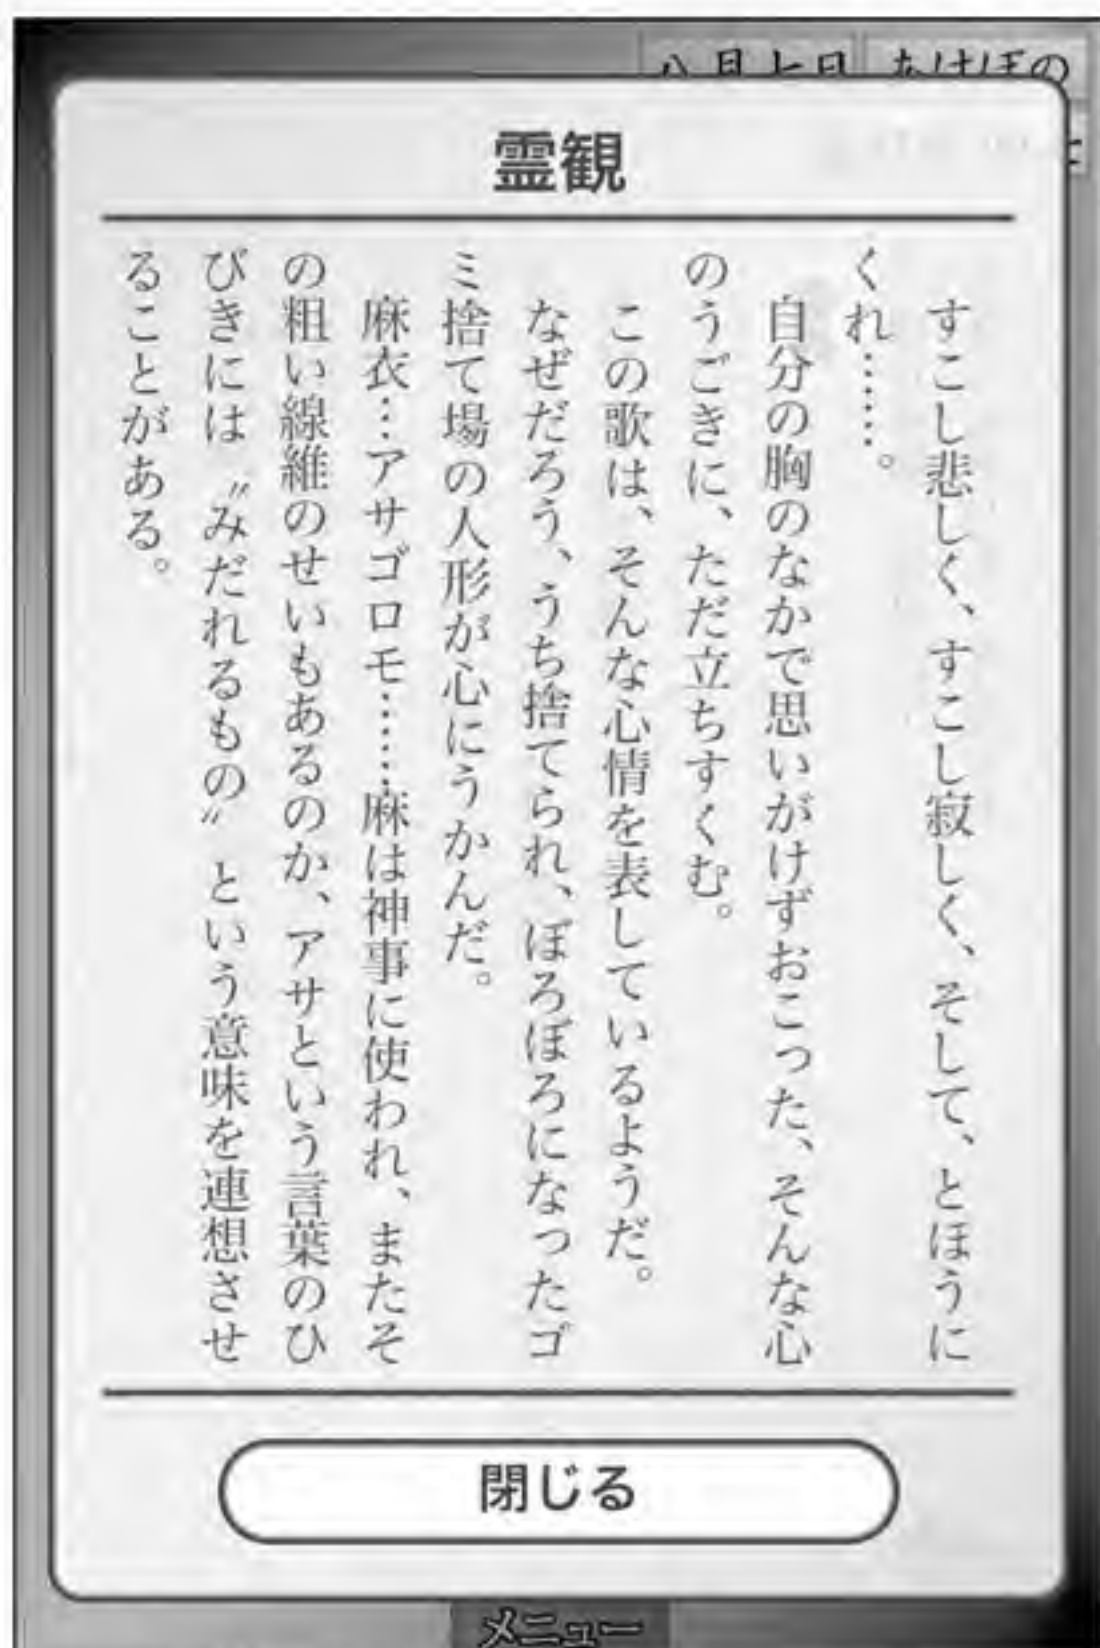 八月七日
あけぼの
霊観
すこし悲しく、すこし寂しく、そして、とほうに
くれ……。
自分の胸のなかで思いがけずおこった、そんな心
のうごきに、ただ立ちすくむ。
この歌は、そんな心情を表しているようだ。
なぜだろう、うち捨てられ、ぼろぼろになったゴ
ミ捨て場の人形が心にうかんだ。
麻衣…アサゴロモ……麻は神事に使われ、またそ
の粗い線維のせいもあるのか、アサという言葉のひ
びきには〝みだれるもの〟という意味を連想させ
ることがある。
閉じる
メニュー